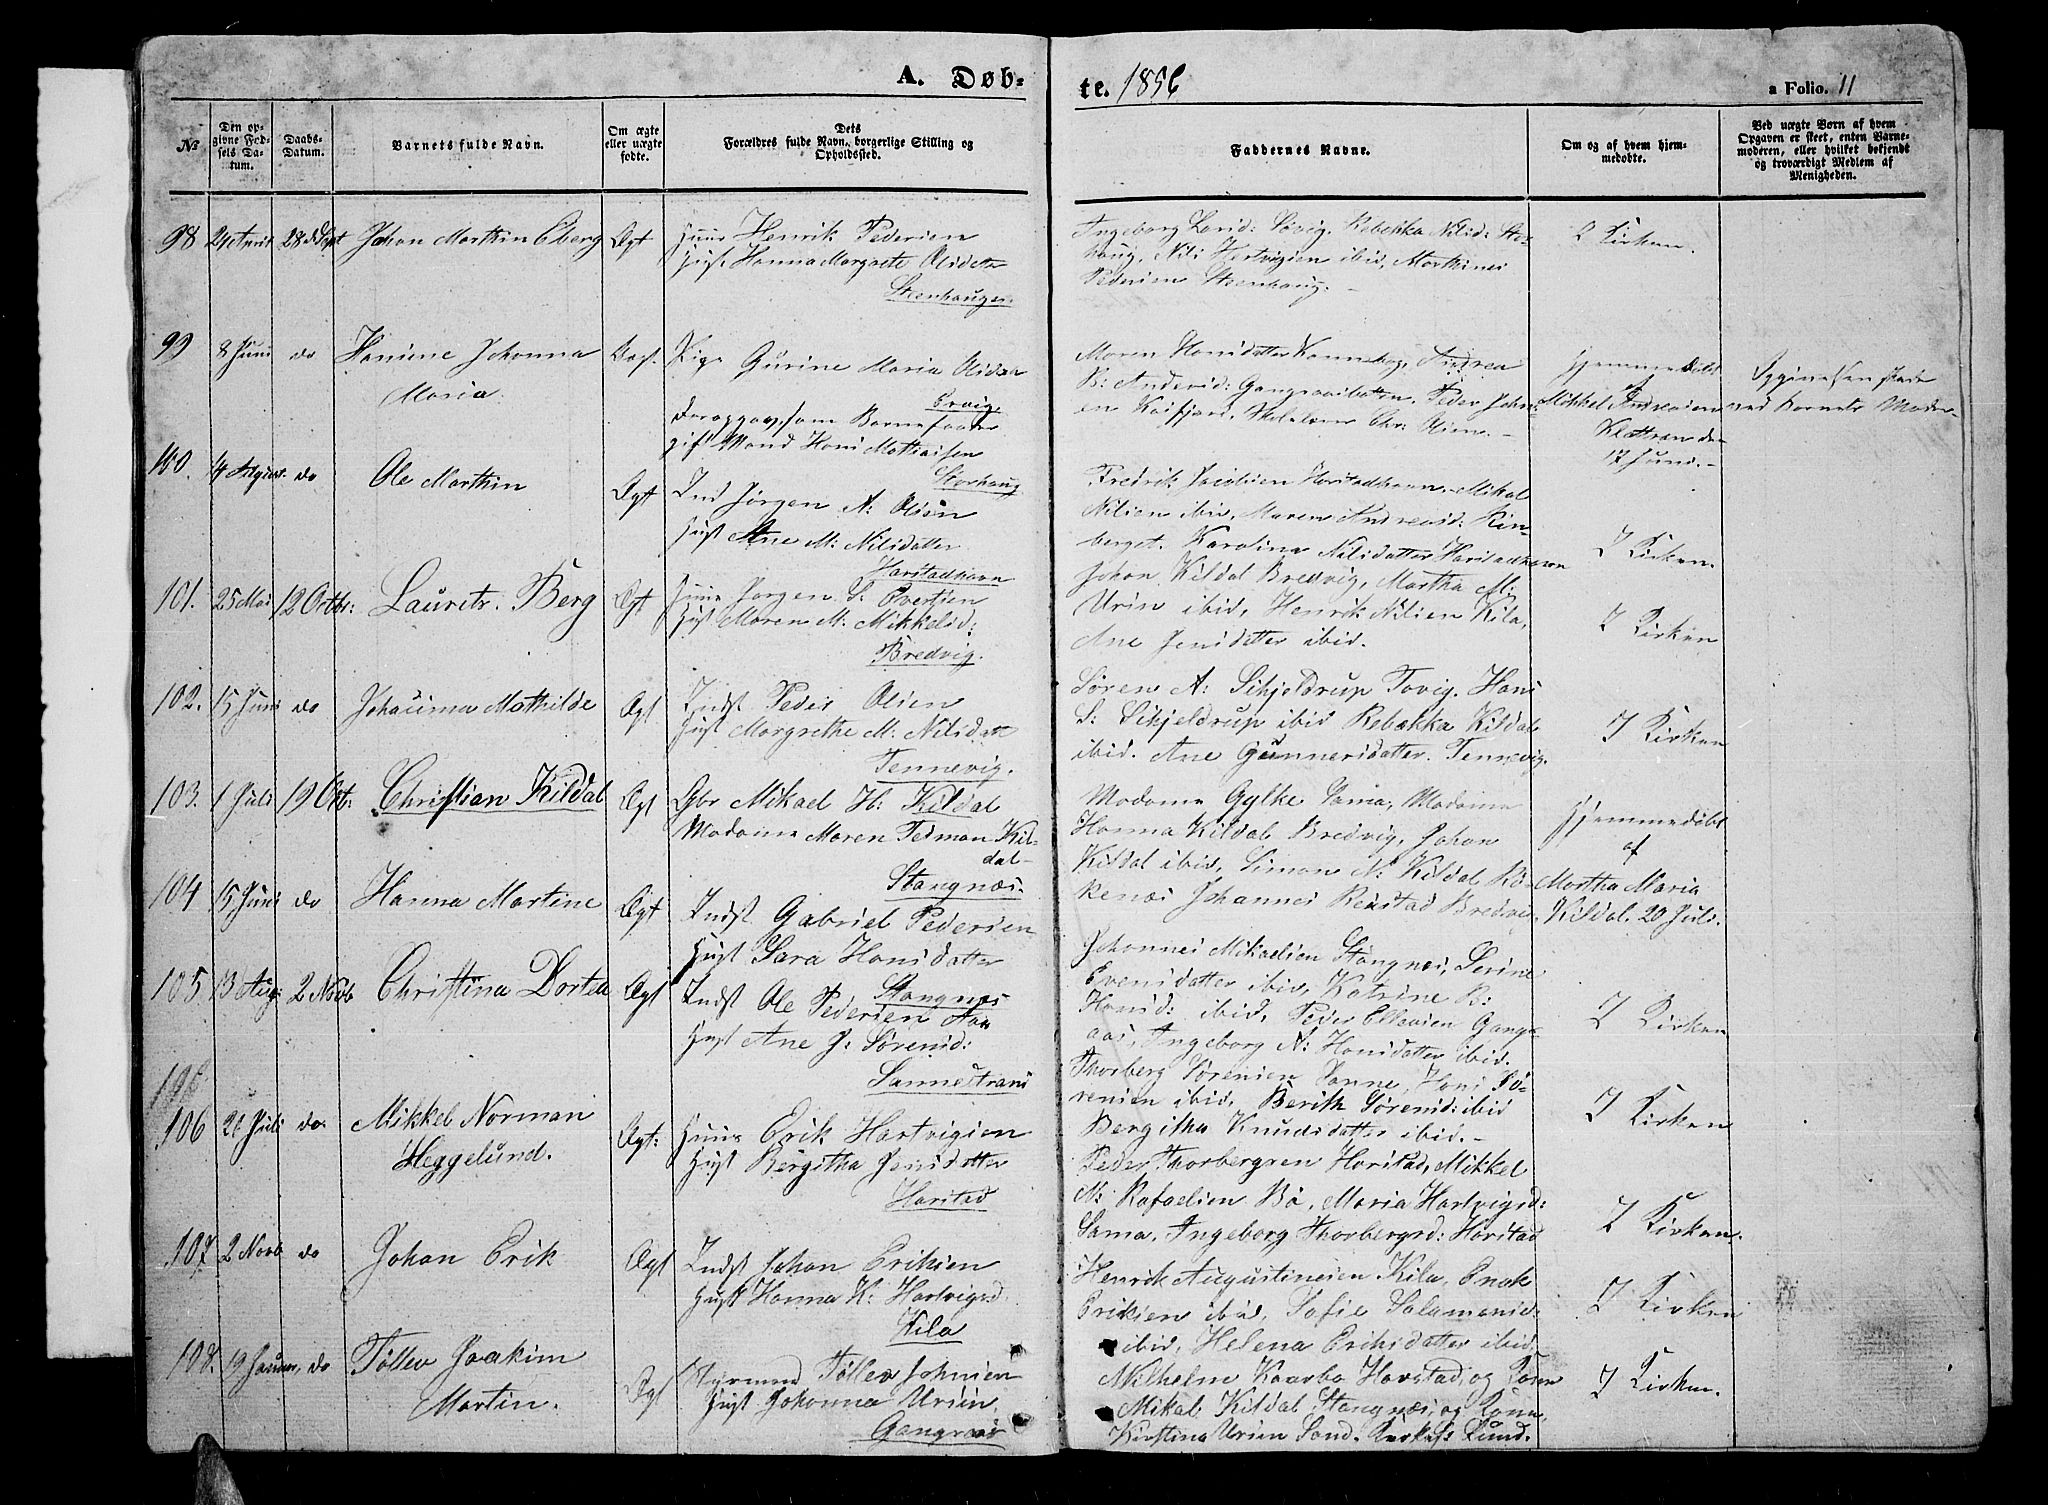 A. Døb-
te. 1856
a Folio. 11
No
Den op-
givne Fød-
sels Da-
tum.
Daabs-
Datum.
Barnets fulde Navn.
Om ægte
eller uægte
fødte.
Dets
Forældres fulde Navn, borgerlige Stilling og
Opholdssted.
Faddernes Navne.
Om og af hvem hjem-
medøbte.
Ved uægte Børn af hvem
Opgaven er skeet, enten Barne-
moderen, eller hvilket bekjendt
og troværdigt Medlem af
Menigheden.
98 28d Sept Johan Marthin Eberg Ægt
Huus Henrik Pedersen
Hust Hanna Margrete Olsdatter
Steenhaugen
Ingeborg Løvig, Rebekka Nilsd: Steen-
haug, Nils Hertvigsen ibid, Marthines
Pedersen Steenhaug.
I Kirken.
99 8 Juni do Hansine Johanna
Maria
Uægt.
Pige Gurine Maria Olsdatter
Ervig,
der opgav som Barnefader
gift Mand Hans Mathiassen
Storhaug
Maren Hansdatter Kannebog, Andrea
B: Andersd: Gangsaasbotten, Peder Johns-
en Chr: Olsen.
Hjemmedøbt
af
Mikkel Andreasen
Klatran d.
17 Juni.
Opgivelsen skede
ved Barnets Moder
100. 4 August do Ole Marthin Ægt
Ind Jørgen A: Olsen
Hust Ane M: Nilsdatter
Harstadhavn
Fredrik Jacobsen Harstadhavn, Mikal
Nilsen ibid, Maren Andreasd: Rin-
berget. Karolina Nilsdatter Harstadhavn
I Kirken.
101. 25 Mai 12 Octbr: Lauritz Berg Ægt
Huus Jørgen S: Evertsen
Hust Maren M: Mikkelsd:
Bredvig.
Johan Kildal Bredvig, Martha M:
Ursin ibid, Henrik Nilsen Kila,
Ane Jensdatter ibid.
I Kirken
102. 15 Juni do Johanna Mathilde Ægt
Indst Peder Olsen
Hust Margrethe M: Nilsdat
Tennevig.
Søren A: Schjeldrup Tovig. Hans
S: Schjeldrup ibid Rebekka Kildal
ibid. Ane Gunnersdatter. Tennevig.
I Kirken
103. 1 Juli 19 Oct: Christian Kildal Ægt
Gbr Mikael H: Kildal
Madame Maren Tedman Kil-
dal
Stangnæs.
Madame Gylke Sama, Madame
Hanna Kildal Bredvig, Johan
Kildal ibid, Simon N: Kildal Rø-
kenæs Johannes Reistad Bredvig.
Hjemmedøbt
af
Martha Maria
Kildal. 20 Juli.
104 15 Juni do Hanna Martine Ægt
Indst Gabriel Pedersen
Hust Sara Hansdatter
Stangnæs
Johannes Mikaelsen Stangnæs, Serine
Evensdatter ibid, Katrine B:
Hansd: ibid, Peder Ellevsen Gangs-
aas, Ingeborg A: Hansdatter ibid.
I Kirken
105 13 Aug: 2 Novb Christina Dortea Ægt
Indst Ole Pedersen Aan
Hust Ane J: Sørensd:
Sannestrand
Thorberg Sørensen Sanne, Hans Sø-
rensen ibid, Berith Sørensd: ibid
Bergitha Knudsdatter ibid.
I Kirken
106 21 Juli do Mikkel Norman
Heggelund.
Ægt:
Huus Erik Hartvigsen
Hust Bergitha Jensdatter
Harstad
Peder Thorbergsen Harstad, Mikkel
N: Rafaelsen Bø, Maria Hartvigsd:
Sama, Ingeborg Thorbergsd: Harstad
I Kirken.
107 2 Novb do Johan Erik Ægt
Indst Johan Eriksen
Hust Hanna K: Hartvigsd.
Kila
Henrik Augustinusen Kila, Enok
Eriksen ibid, Sofie Salamonsd.
ibid, Helena Eriksdatter ibid.
I Kirken
108. 19 do Tøllev Joakim
Martin.
Ægt
Styrmand Tøllev Johnsen
Hust Johanna Ursin,
Gangsaas
Wilhelm Kaarbø Harstad, og Kone
Mikal Kildal Stangnæs, og Kone,
Kirstina Ursin Sand.
I Kirken.